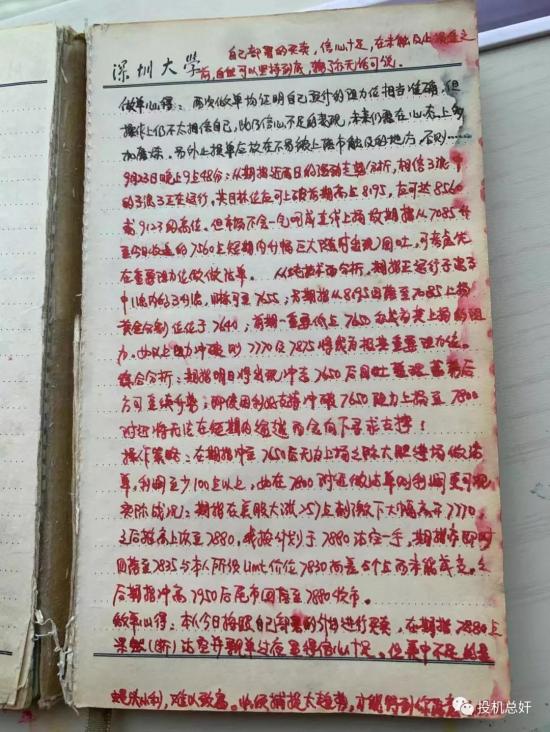 自己部署的买卖，信心十足，在未触及止损位之
深圳大学
前，自然可以坚持到底，输了亦无话可说。
做单心得：两次做单均证明自己预计的阻力位相当准确，但
操作上仍不太相信自己，此乃信心不足的表现，未来仍需在心态上多
加磨练。另外止损单应放在不易被上落市触及的地方，否则……
9月23日晚上9点45分：从期指近两日的强劲走势分析，相信3浪中
的3浪3正在运行，其目标位应可上破前期高点8195，应可达8560
或9123的高位。但市场不会一包可岸直线上扬，故期指从7085升
至今日收道的7560点短期内升幅巨大随时出现回吐，可考虑优
在重要阻力位做做沽单。 从结构方面分析，期指正运行于浪3
中1浪内的3小浪，目标可至7655；另期指从8195回落至7085上扬
黄金分割位位于7640；前期一重要低点7650亦成为其上扬的阻
力。如以上阻力冲破则7770及7875将成为相关重要阻力位。
综合分析：期指明日将出现冲高7650后回吐整理蓄势后
方可至续升势；即使因利好支撑冲破7650阻力上扬至7800
附近将无法在短期内逾越而会向下寻求支撑！
操作策略：在期指冲至7650后无力上扬之际大胆进场做沽
单，利润至少100点以上，如在7800附近做沽单则利润更可观
实际战况：期指在美股大涨257点刺激下大幅高开7770
之后推高上试至7880，我按计划于7880沽空一手，期指亦即时
回落至7835与本人所设Limit价位7830相差5个点而未能成交。之
后期指冲高7950后尾市回落至7880收市。
做单心得：本人今日按照自己部署的计划进行买卖，在期指7880点
果然(断)沽空并觉单过位显得信心十足。但其中不足的是
蝇头小利，难以致富。必须捕捉大趋势，才能得到
投机总奸